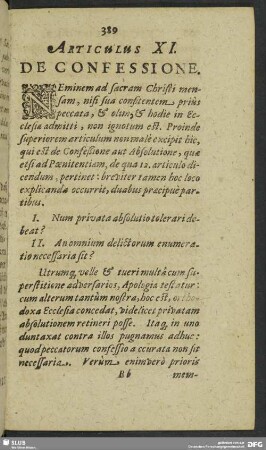 389
ARTICULUS XI.
DE CONFESSIONE.
NEminem ad sacram Christi men-
sam, nisi sua confitentem prius
peccata, & olim, & hodie in Ec-
clesia admitti, non ignotum est. Proinde
superiorem articulum non malè excipit hic,
qui est de Confessione aut Absolutione, quæ
etsi ad Pœnitentiam, de qua 12. articulo di-
cendum, pertinet: breviter tamen hoc loco
explicanda occurrit, duabus præcipuè par-
tibus.
I. Num privata absolutio tolerari de-
beat?
II. An omnium delictorum enumera-
tio necessaria sit?
Utrumq; velle & tueri multâ cum su-
perstitione adversarios, Apologia testatur:
cum alterum tantùm nostra, hoc est, ortho-
doxa Ecclesia concedat, videlicet privatam
absolutionem retineri posse. Itaq; in uno
duntaxat contra illos pugnamus adhuc:
quod peccatorum confessio accurata non sit
necessaria. Verùm enimverò prioris
Bb mem-
SLUB